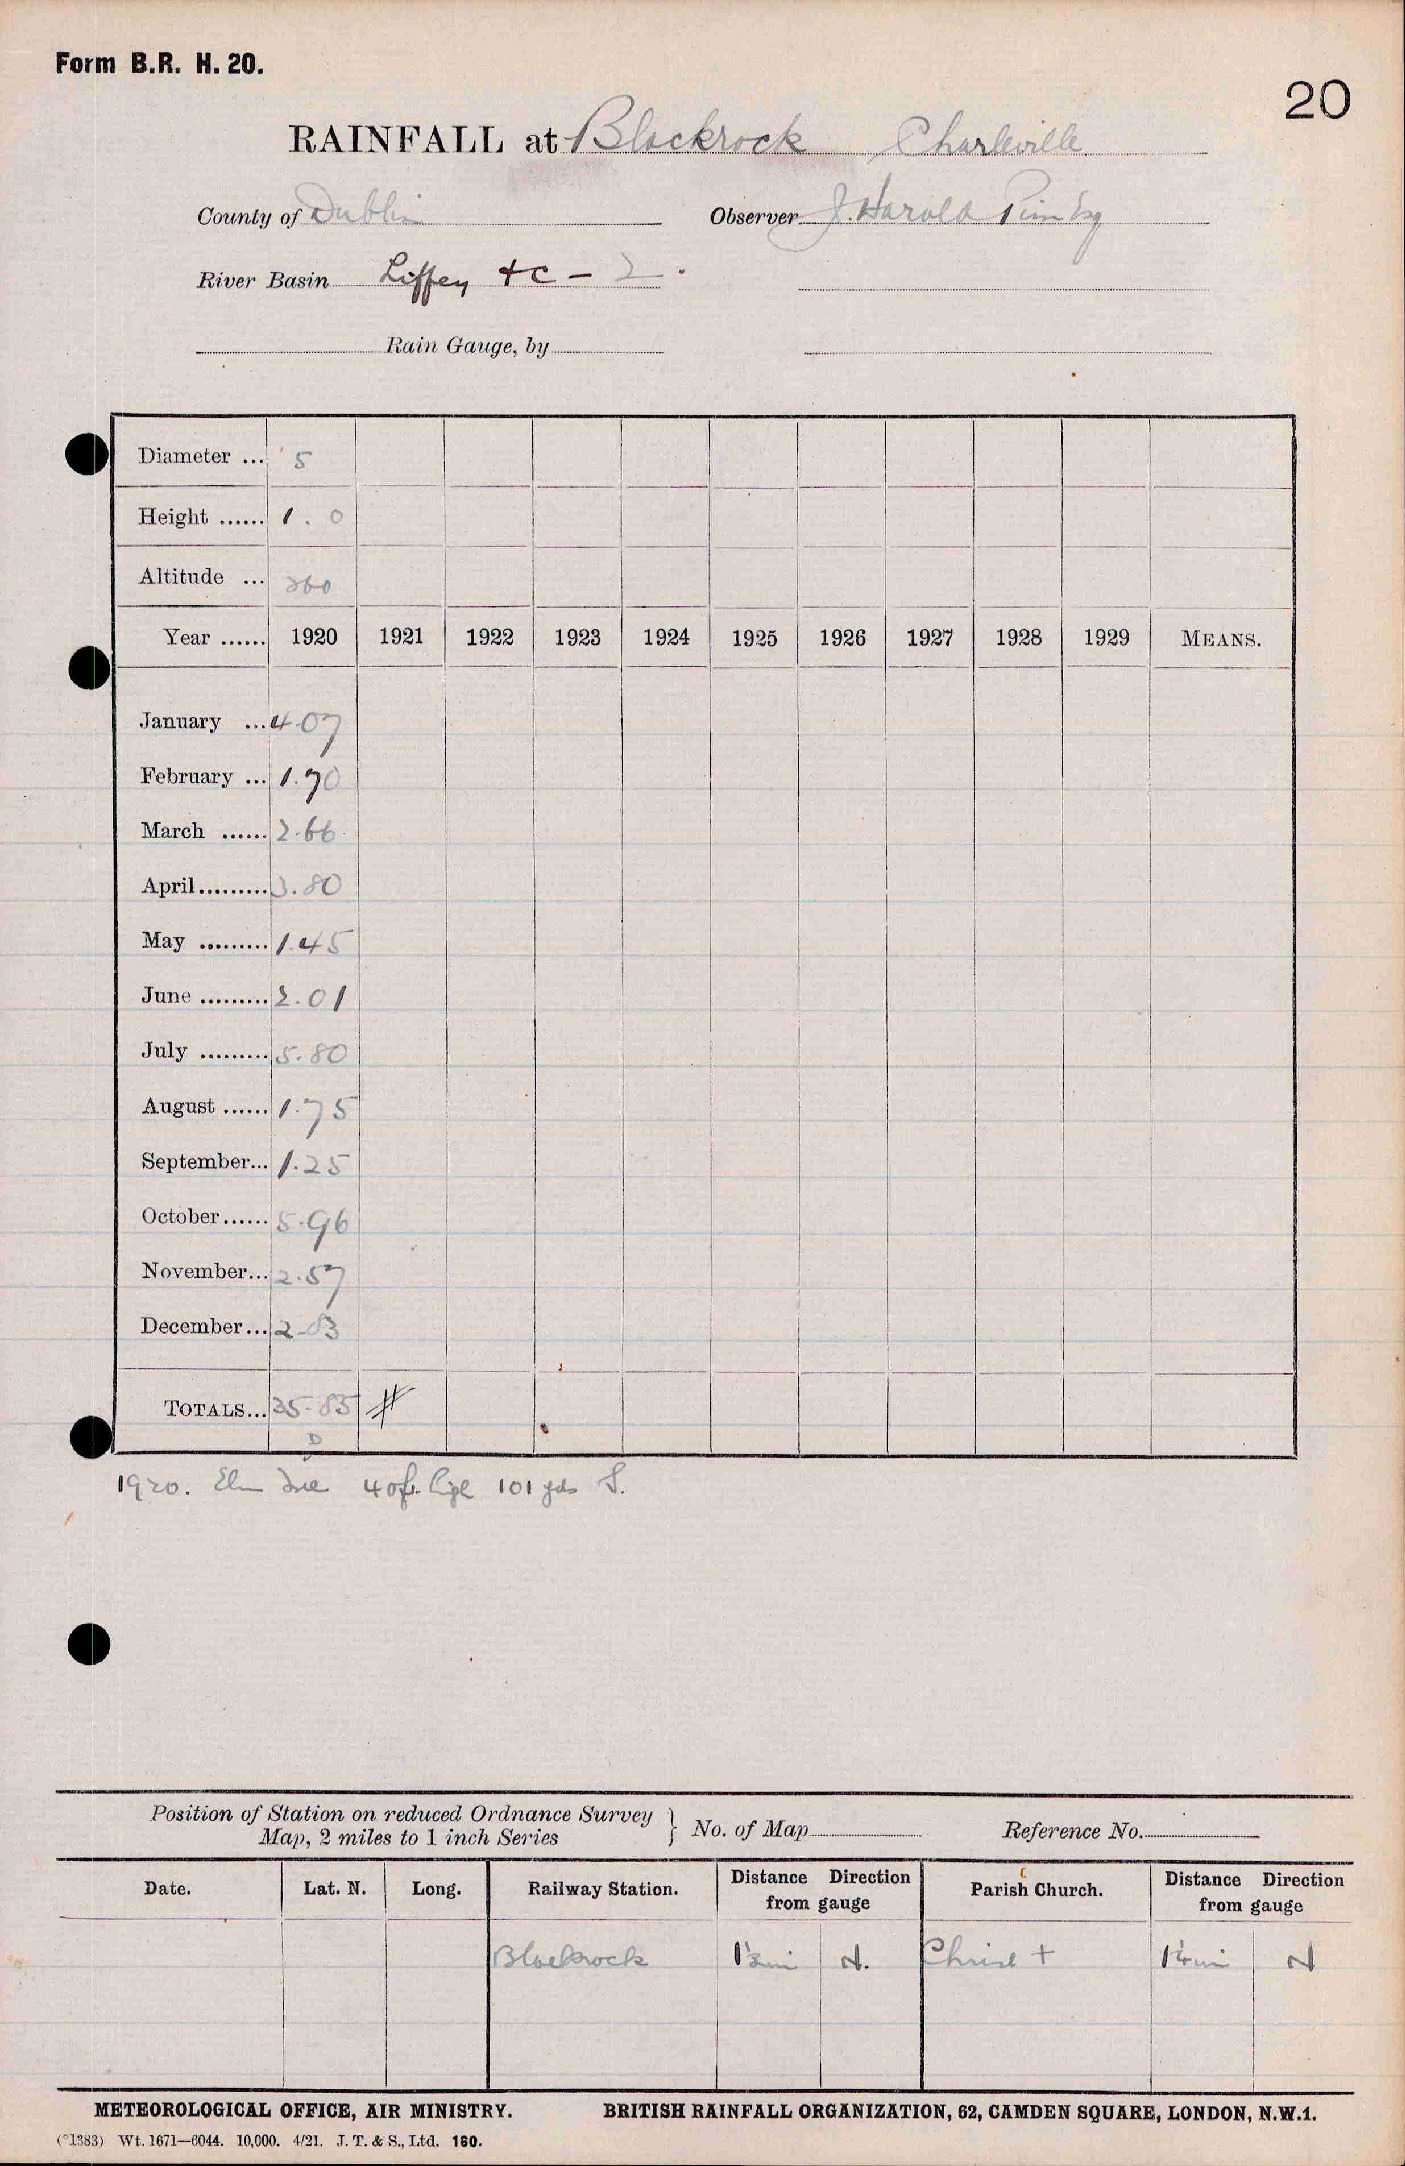 Form B.R. H. 20.
20
RAINFALL at Blackrock Charleville
County of Dublin Observer J. Harold Pim Esq
River Basin Liffey +c - 2.
Rain Gauge, by
Diameter ... 5
Height ...... 1.0
Altitude ... 260
Year ...... 1920 1921 1922 1923 1924 1925 1926 1927 1928 1929 MEANS.
January ... 4.07
February ... 1.70
March ...... 2.66
April ......... 3.80
May ......... 1.45
June ......... 2.01
July ......... 5.80
August ...... 1.75
September ... 1.25
October ...... 5.96
November ... 2.57
December ... 2.83
TOTALS ... 35.85 #
D
1920. Elm Tree 40ft. high 101 yds S.
Position of Station on reduced Ordnance Survey
Map, 2 miles to 1 inch Series } No. of Map Reference No.
Date. Lat. N. Long. Railway Station. Distance Direction from gauge Parish Church. Distance Direction from gauge
Blackrock N. Christ + N
METEOROLOGICAL OFFICE, AIR MINISTRY. BRITISH RAINFALL ORGANIZATION, 62, CAMDEN SQUARE, LONDON, N.W.1.
(°1383) Wt. 1671—6044. 10,000. 4/21. J. T. & S., Ltd. 160.